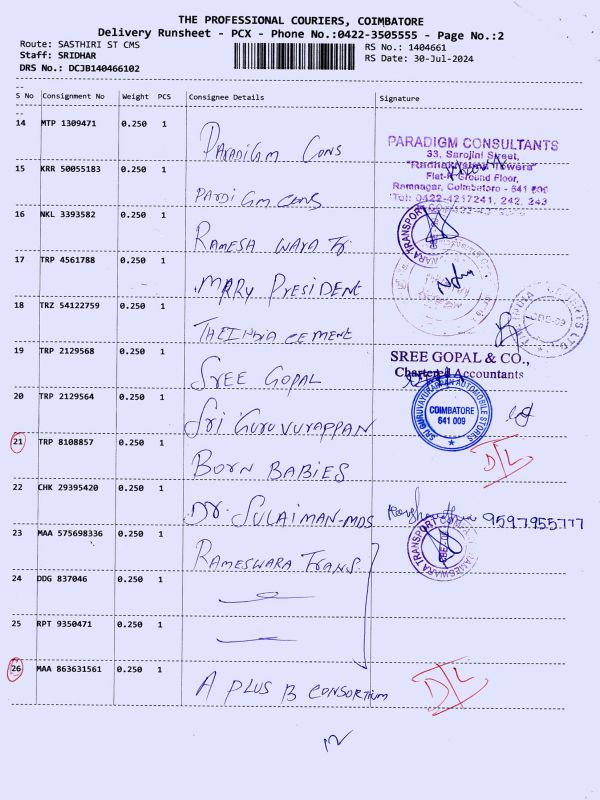 THE PROFESSIONAL COURIERS, COIMBATORE
Delivery Runsheet - PCX - Phone No.:0422-3505555 - Page No.:2
Route: SASTHIRI ST CMS
RS No.: 1404661
Staff: SRIDHAR
RS Date: 30-Jul-2024
DRS No.: DCJB140466102
S No Consignment No Weight PCS Consignee Details Signature
14 MTP 1309471 0.250 1 PARADIGM CONS
PARADIGM CONSULTANTS
33, Sarojini Street,
"Radhakrishna Towers"
Flat-F Ground Floor,
Ramnagar, Coimbatore - 641 009
Tel: 0422-4217241, 242, 243
15 KRR 50055183 0.250 1 PARDIGM CONS
16 NKL 3393582 0.250 1 RAMESA WARA Tr.
17 TRP 4561788 0.250 1 MRRY PRESIDENT
18 TRZ 54122759 0.250 1 THEINDIA CEMENT
CBE-09
19 TRP 2129568 0.250 1 SREE GOPAL
SREE GOPAL & CO.,
Chartered Accountants
20 TRP 2129564 0.250 1 Sri GURUVURAPPAN
SRI GURUVAYURAPPAN AUTOMOBILE STORES
COIMBATORE
641 009
21 TRP 8108857 0.250 1 BORN BABIES
D/L
22 CHK 29395420 0.250 1 DR. SULAIMAN-MDS
9597955777
23 MAA 575698336 0.250 1 RAMESWARA TRANS
RAMESWARA TRANSPORT
24 DDG 837046 0.250 1
25 RPT 9350471 0.250 1
26 MAA 863631561 0.250 1 A PLUS B CONSORTIUM
D/L
12